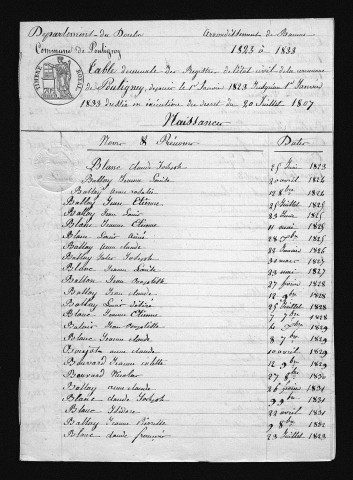 Département du Doubs Arrondissement de Baume
Commune de Pouligney 1823 à 1833
TIMBRE ROYAL
Table décennale des Registres de l'état civil de la commune
de Pouligney, depuis le 1er Janvier 1823 Jusqu'au 1er Janvier
1833 dressée en exécution du décret du 20 Juillet 1807
Naissances
Noms & Prénoms Dates
Blanc claude Joseph 25 1823
Ballay Jeanne Louise 20 avril 1824
Ballay anne 1824
Ballay Jean Etienne 25 Juillet 1825
Ballay Jean Louis 1825
Blanc Jeanne Etienne 11 mai 1825
Blanc Louis Aimé 1825
Ballay anne claude 22 Janvier 1826
Ballay Jules Joseph 31 mars 1826
Blanc Jeanne Louise 23 mai 1827
Ballay Jean Baptiste 27 février 1828
Ballay Jean claude 12 9bre 1828
Ballay Louis Désiré 25 Juillet 1828
Blanc Jeanne Etienne 7 7bre 1828
Jean Baptiste 1829
Blanc Jeanne claude 8 7bre 1829
anne claude 10 avril 1829
Bouvard Jeanne colette 12 9bre 1829
Bouvard Nicolas 27
Ballay anne claude 26 février 1831
Blanc claude Joseph 9 9bre 1831
Blanc Isidore 22 avril 1831
Ballay Jeanne 9 8bre 1832
Blanc claude françois 23 Juillet 1823